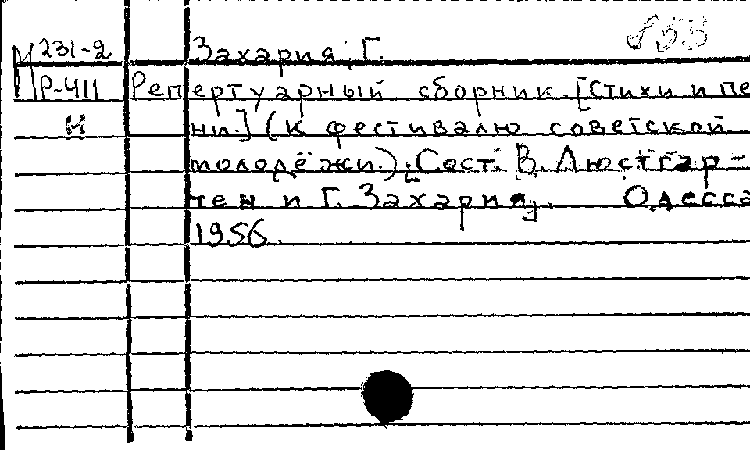 М 231-2 Захария, Г.
Р-411 Репертуарный сборник. [Стихи и пе
Н ни.] (к фестивалю советской
молодёжи.) [Сост. В. Люстгар-
тен и Г. Захария]. Одесса
1956.